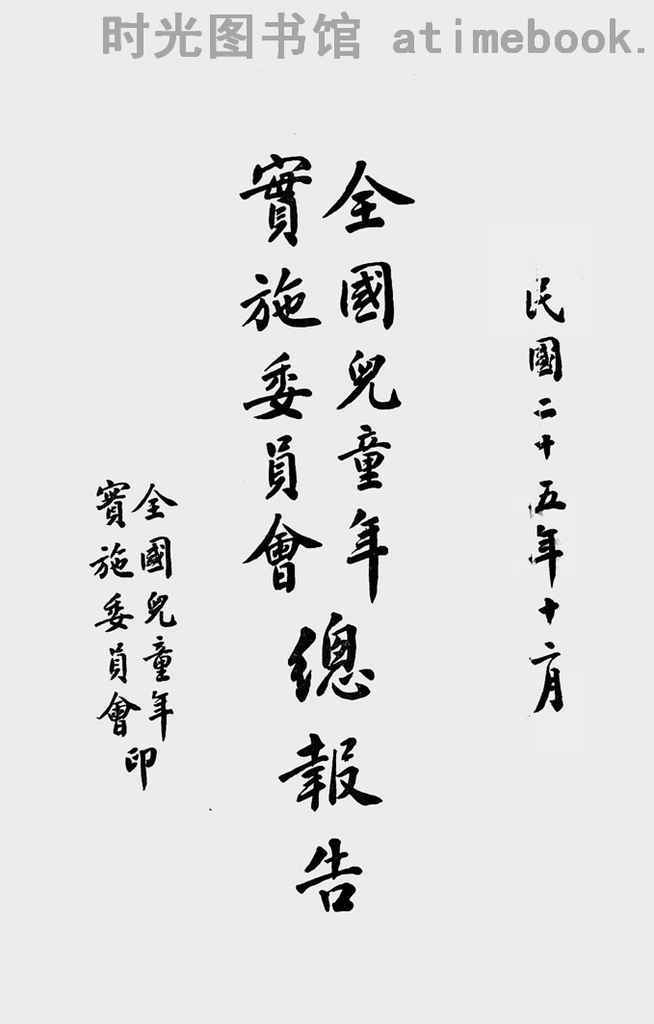 时光图书馆 atimebook.
民國二十五年十二月
全國兒童年
實施委員會
總報告
全國兒童年
實施委員會
印